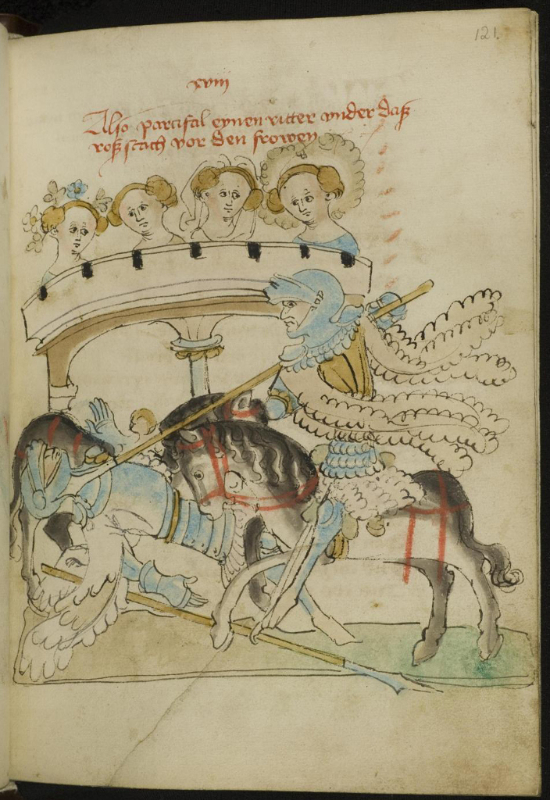 121.
xviij
Also parcifal eynen ritter vnder daß
roß stach vor den frowen